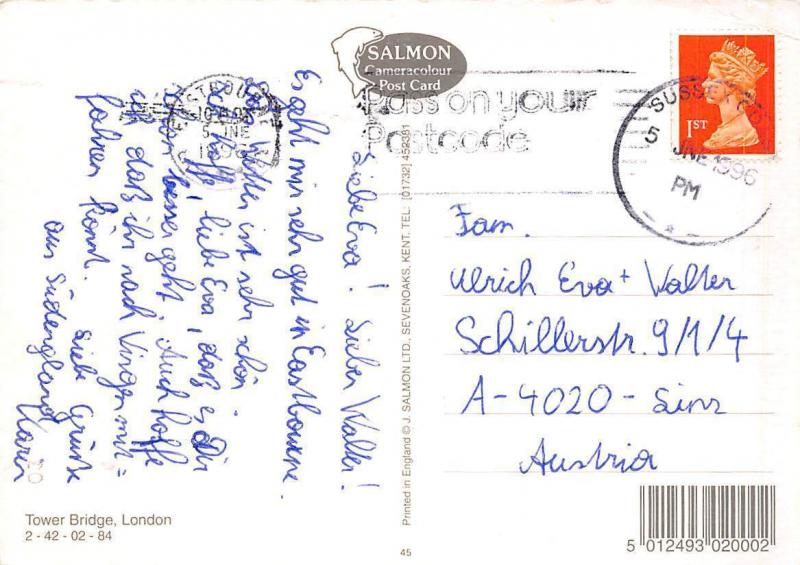 SALMON
Cameracolour
Post Card
Pass on your
Postcode
EASTBOURNE
5 JNE
1996
SUSSEX
5 JNE 1996
PM
1ST
Liebe Eva! Lieber Walter!
Es geht mir sehr gut in Eastbourne.
Das Wetter ist sehr schön.
Ich hoffe, liebe Eva, daß es Dir
schon besser geht. Auch hoffe
ich, daß ihr nach Vingen mit=
fahren könnt. Liebe Grüße
aus Südengland
Karin
Fam.
Ulrich Eva + Walter
Schillerstr. 9/1/4
A-4020-Linz
Austria
Printed in England © J. SALMON LTD., SEVENOAKS, KENT. TEL: [01732] 452381
Tower Bridge, London
2 - 42 - 02 - 84
45
5 012493 020002